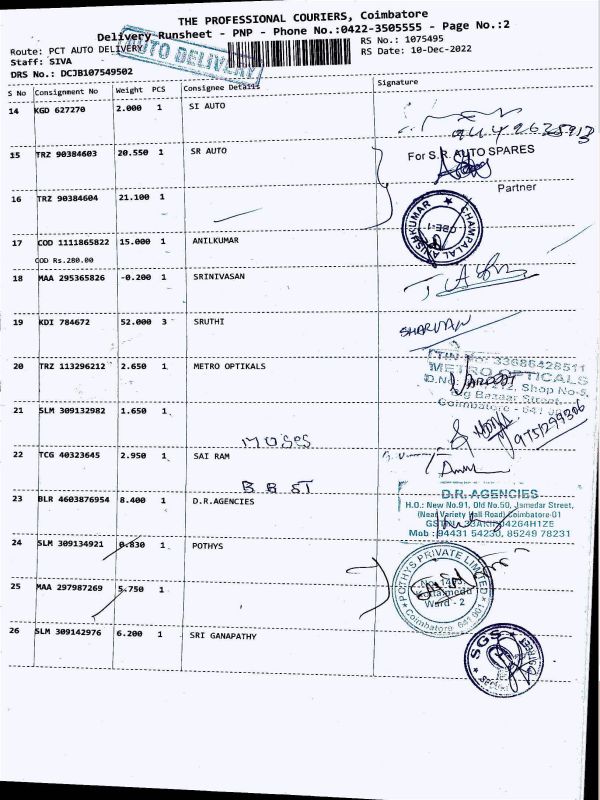 THE PROFESSIONAL COURIERS, Coimbatore
Delivery Runsheet - PNP - Phone No.:0422-3505555 - Page No.:2
Route: PCT AUTO DELIVERY
AUTO DELIVERY
RS No.: 1075495
Staff: SIVA
RS Date: 10-Dec-2022
DRS No.: DCJB107549502
S No Consignment No Weight PCS Consignee Details Signature
14 KGD 627270 2.000 1 SI AUTO
15 TRZ 90384603 20.550 1 SR AUTO
For S.R. AUTO SPARES
Partner
16 TRZ 90384604 21.100 1
CHAMPALAL ANISHKUMAR
CBE-1
17 COD 1111865822 15.000 1 ANILKUMAR
COD Rs.280.00
18 MAA 295365826 -0.200 1 SRINIVASAN
19 KDI 784672 52.000 3 SRUTHI
SHARVAN
20 TRZ 113296212 2.650 1 METRO OPTIKALS
TIN No: 33686428511
METRO OPTICALS
Shop No-5,
Big Bazaar Street,
Coimbatore - 641 001
21 SLM 309132982 1.650 1
9751299306
MOSES
22 TCG 40323645 2.950 1 SAI RAM
B B ST
23 BLR 4603876954 8.400 1 D.R.AGENCIES
D.R. AGENCIES
H.O.: New No.91, Old No.50, Jamedar Street,
(Near Variety Hall Road) Coimbatore-01
Mob : 94431 54230, 85249 78231
24 SLM 309134921 0.830 1 POTHYS
POTHYS PRIVATE LIMITED
Ward - 2
Coimbatore 641 001
25 MAA 297987269 5.750 1
26 SLM 309142976 6.200 1 SRI GANAPATHY
SGS